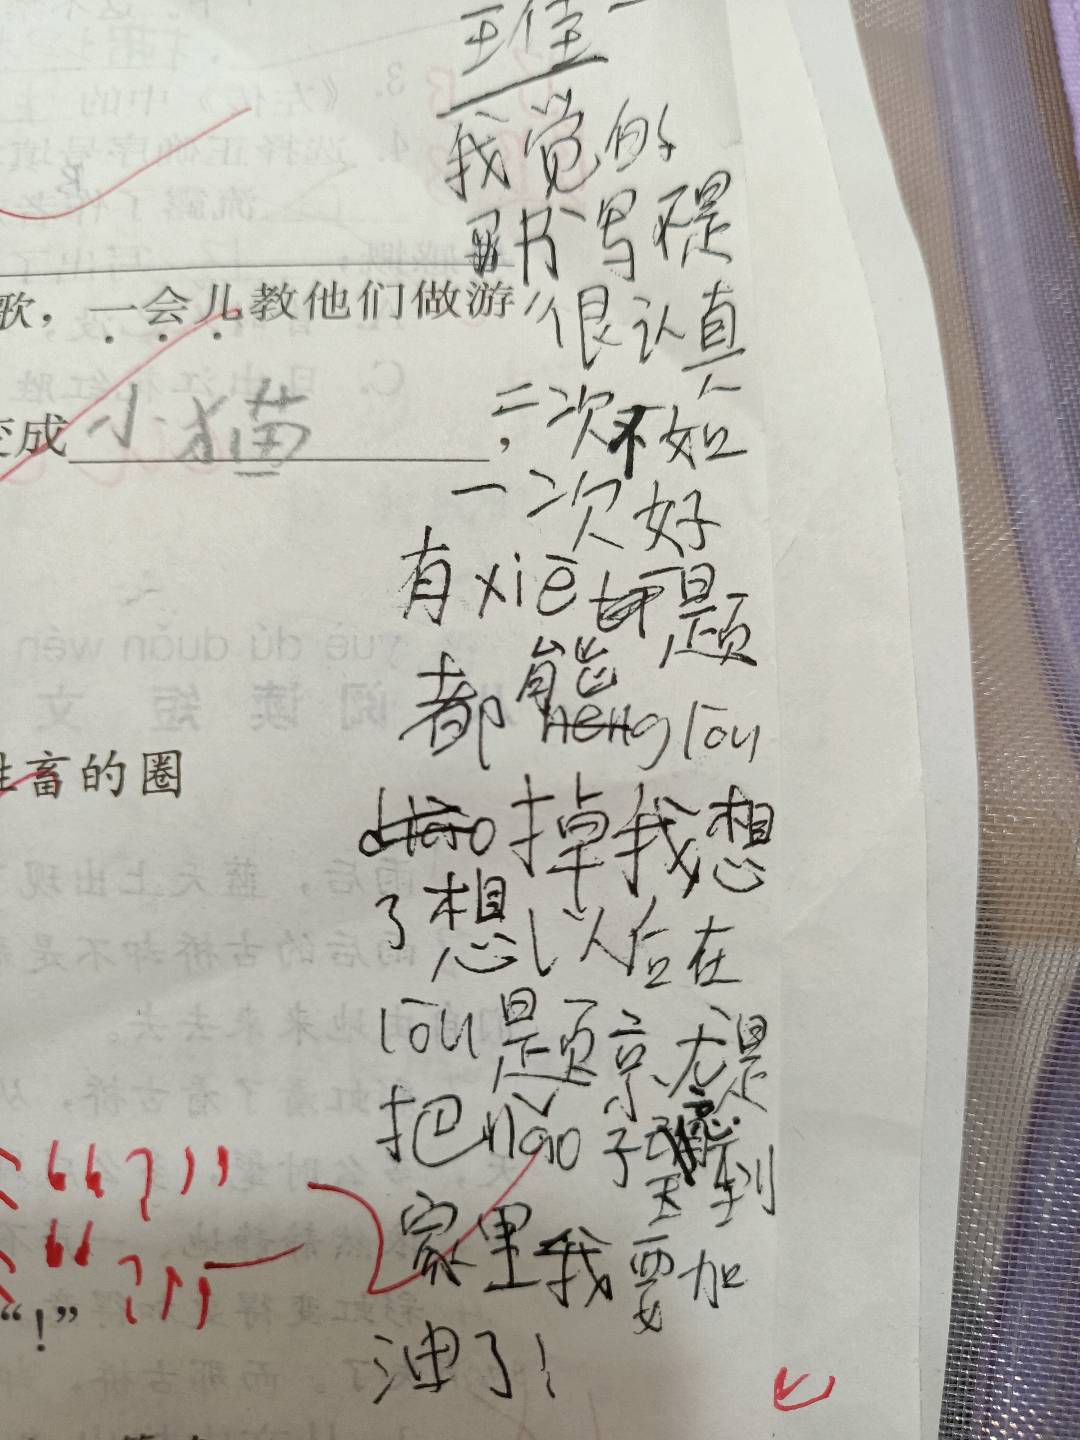 王佳一
我觉的
书写不是
歌，一会儿教他们做游
很认真
变成小猫，
二次不如
一次好
有xiē 题
都能lòu
掉我想
牲畜的圈
了想以后在
lòu题京尤是
把nǎo子丢到
家里我要加
“！”
油了！